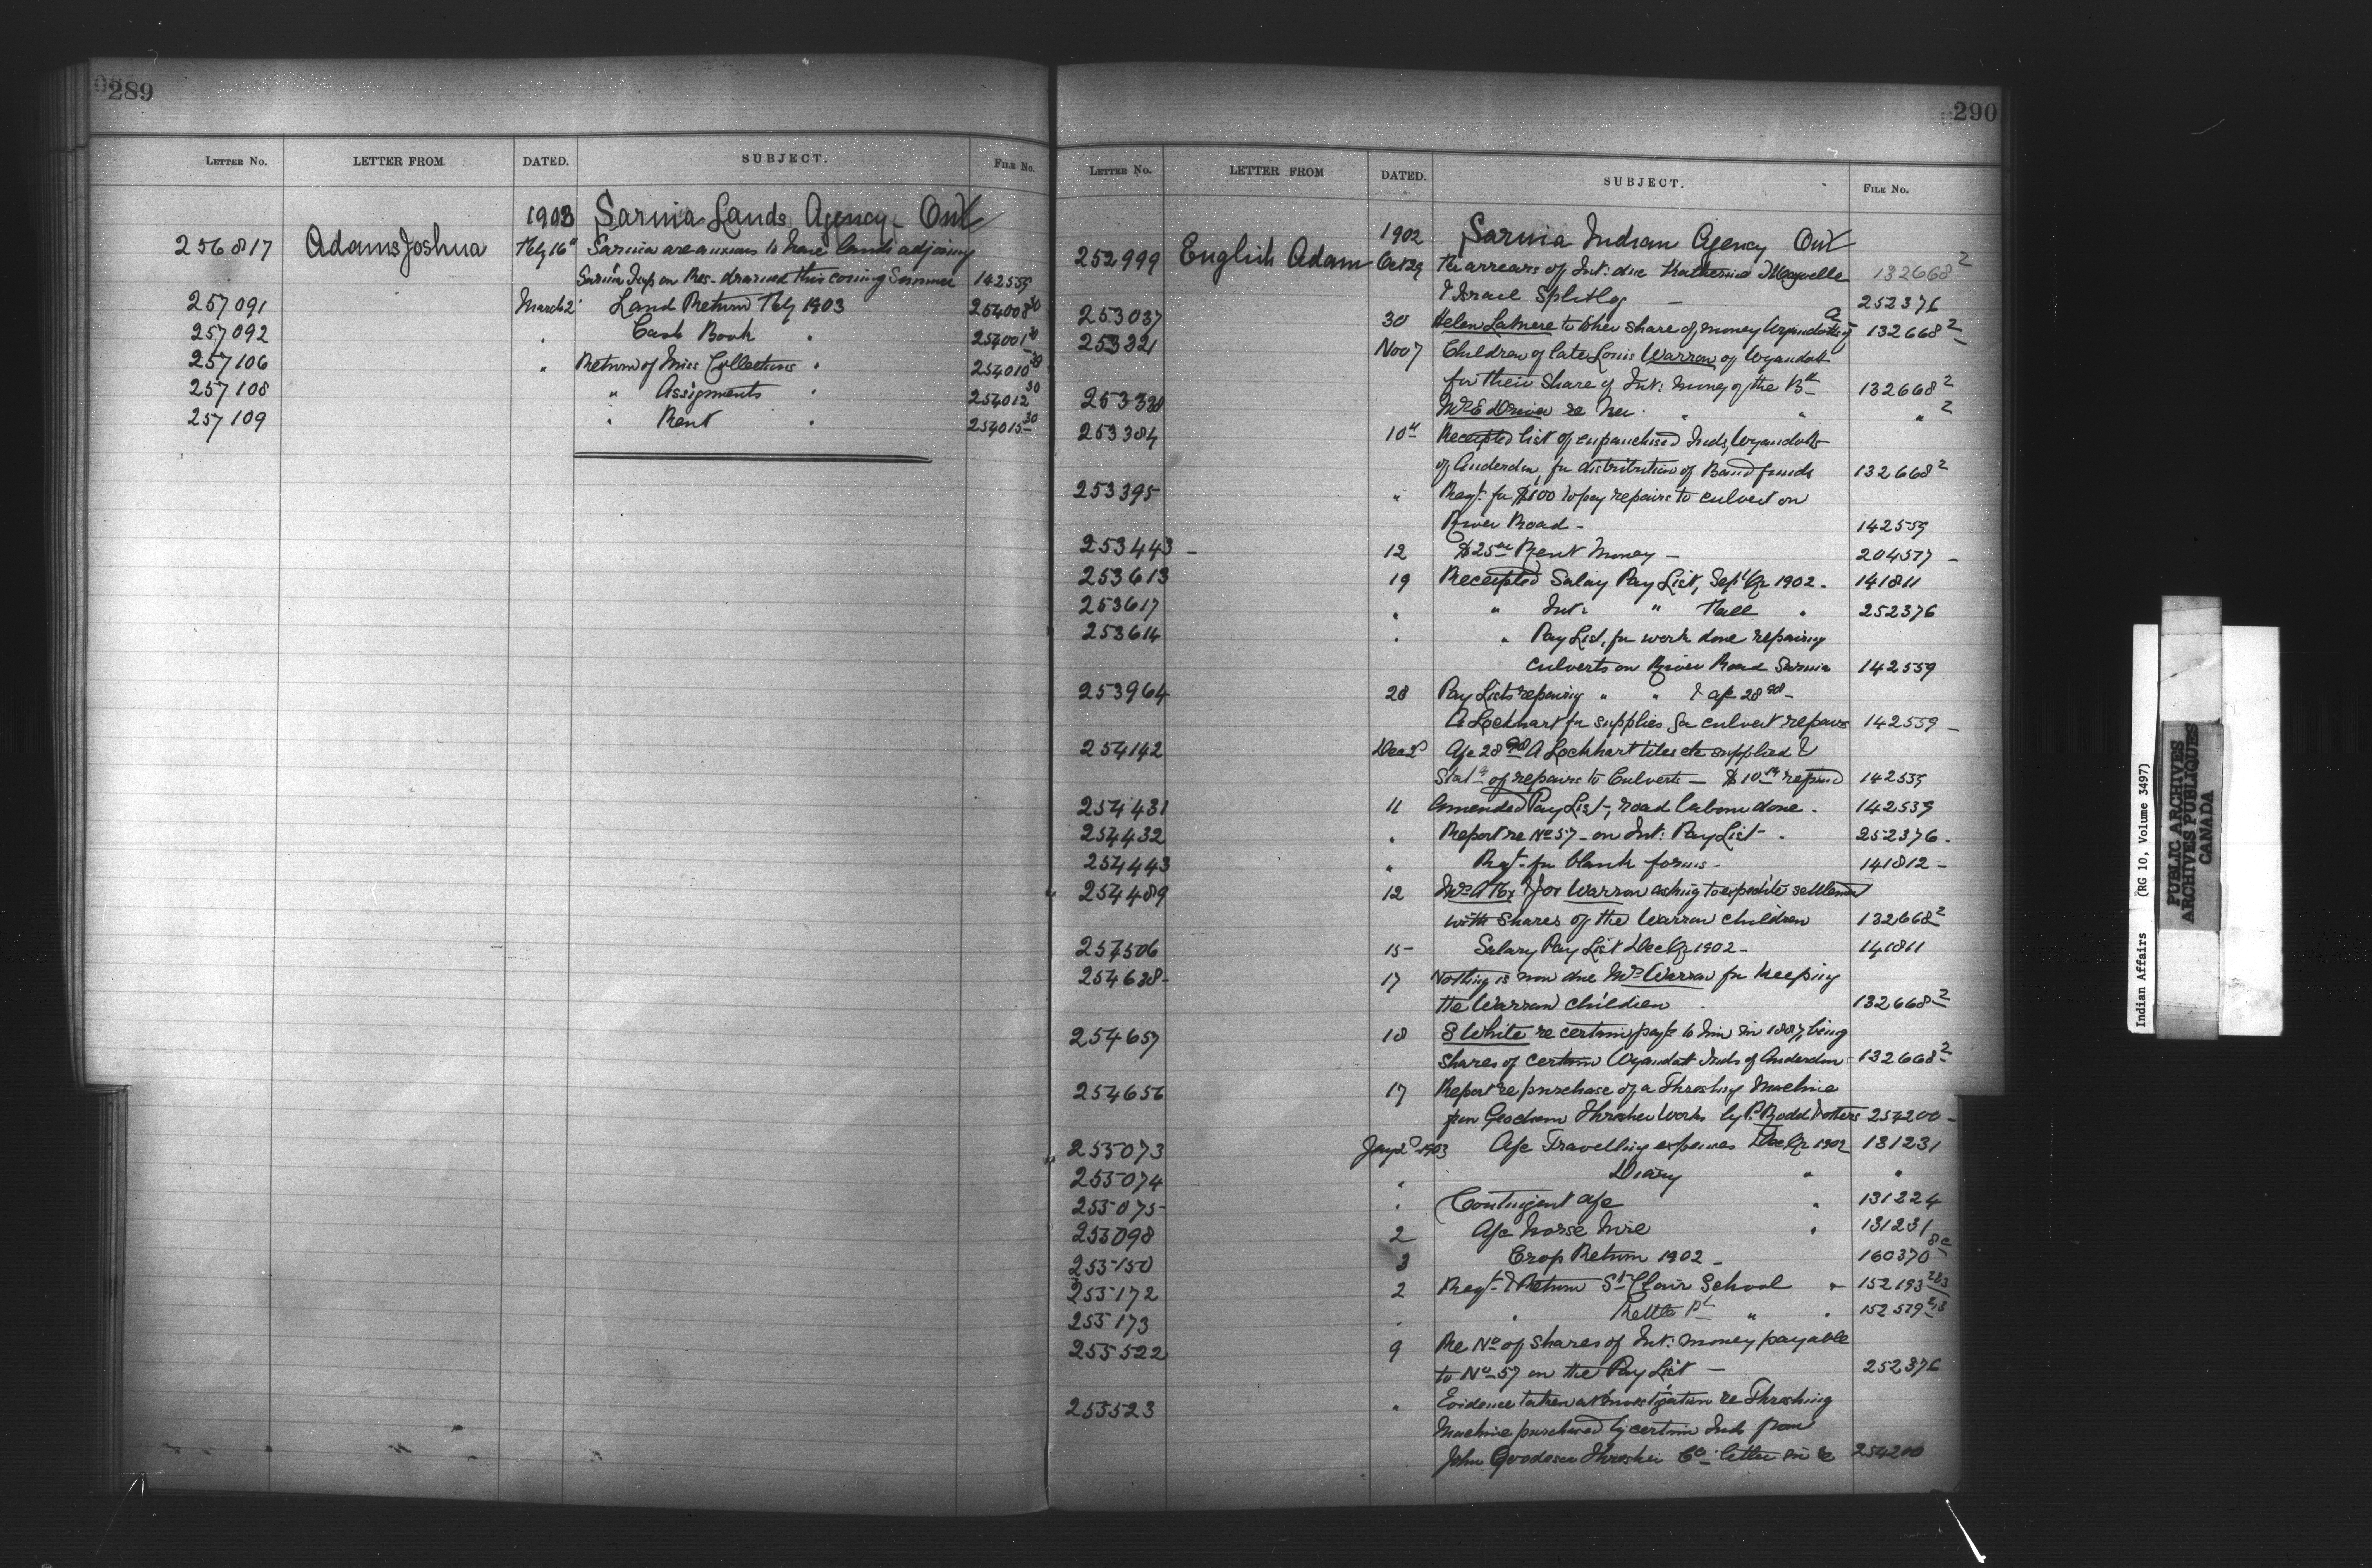 289
LETTER No. LETTER FROM DATED. SUBJECT. FILE No.
1903 Sarnia Lands Agency Ont
256817 Adams Joshua Feby 16" Sarnia are anxious to have lands adjoining
Sarnia on Res- drained this coming Summer 142559
257091 March 2" Land Return Feby 1903 254008 30
257092 " Cash Book " 254001 20
257106 " Return of Misc Collections " 254010
257108 " Assignments " 254012 30
257109 " Rent " 254015 30
290
LETTER No. LETTER FROM DATED. SUBJECT. FILE No.
1902 Sarnia Indian Agency Ont
252999 English Adam Oct 29 Re arrears of Int: due Katherine Maxwelle 132668 2
& Israel Splitlog — 252376
253037 30 Helen Latmere to her share of money Wyandotts of A 132668 2
253321 Nov 7 Children of late Louis Warrow of Wyandott
for their share of Int: money of the Bd 132668 2
253338 Mrs E Driver re her " " " 2
253384 10th Receipted list of enfranchised Inds, Wyandotts
of Anderdon for distribution of Band funds 132668 2
253395 " Reqt. for $100 to pay repairs to culvert on
River Road - 142559
253443 - 12 $25 Rent Money - 204577 -
253613 19 Receipted Salary Pay List, Sept Qr 1902. 141811
253617 " " Int: " Fall " 252376
253614 " " Pay List, for work done repairing
culverts on River Road Sarnia 142559
253964 28 Pay Lists repairing " " & a/c 28
A Lockhart for supplies for culvert repairs 142559 -
254142 Dec 2d A/c 28 A Lockhart tiles etc supplied &
Statt of repairs to Culverts - $10 refund 142559
254431 11 Amended Pay List, road labour done. 142559
254432 " Report re No 57 - on Int: Pay List - 252376.
254443 " Reqt. for blank forms - 141812 -
254489 12 Mrs A Fox & Jos Warrow asking to expedite settlement
with shares of the Warrow children 132668 2
254506 15- Salary Pay List Dec Qr 1902 - 141811
254638- 17 Nothing is now due Mrs Warrow for keeping
the Warrow children. 132668 2
254657 18 S White re certain payt to him in 1887, being
shares of certain Wyandott Inds of Anderdon 132668 2
254656 17 Report re purchase of a Threshing Machine
from Thresher Works by P. Rodd & others 254200 -
255073 Jany 2d 1903 A/c Travelling expenses Dec Qr 1902 131231
255074 " Diary " "
255075- " Contingent a/c " 131224
255098 2 A/c horse hire " 131231
255150 3 Crop Return 1902 - 160370
255172 2 Reqt. & Return St Clair School " 152193
255173 " " Kettle Pt " " 152579
255522 9 Re No of shares of Int: money payable
to No 57 on the Pay List - 252376
255523 " Evidence taken at investigation re Threshing
Machine purchased by certain Inds from
John Goodeson Thresher Co letter in re 254200
Indian Affairs (RG 10, Volume 3497)
PUBLIC ARCHIVES
ARCHIVES PUBLIQUES
CANADA